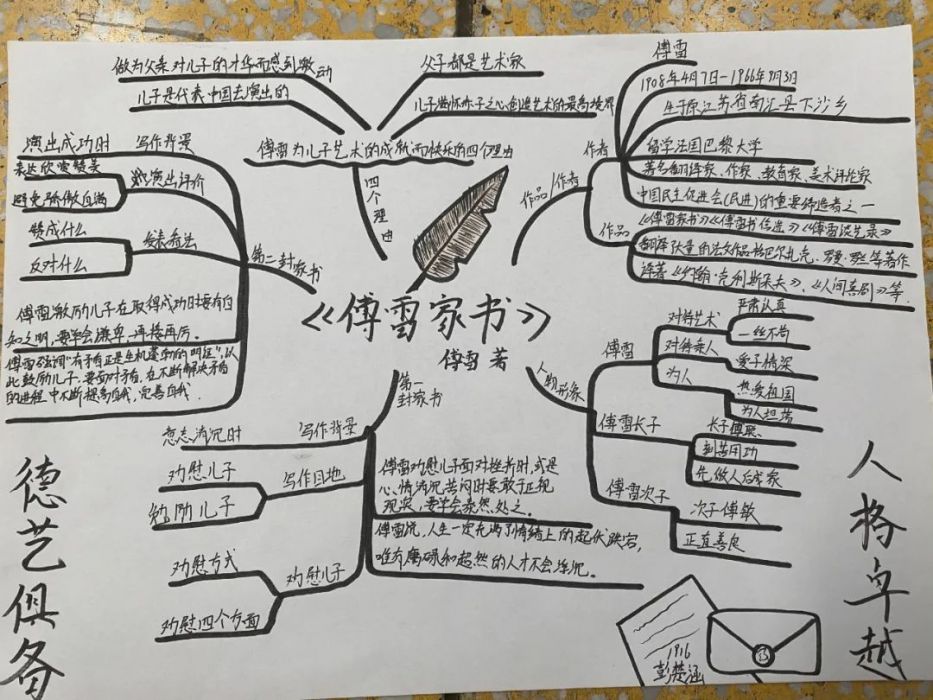 《傅雷家书》
傅雷 著
四个理由
傅雷为儿子艺术的成就而快乐的四个理由
做为父亲对儿子的才华而感到激动
儿子是代表中国去演出的
父子都是艺术家
作品/作者
作者
傅雷
1908年4月7日-1966年9月3日
生于原江苏省南汇县下沙乡
留学法国巴黎大学
著名翻译家、作家、教育家、美术评论家
中国民主促进会(民进)的重要缔造者之一
作品
《傅雷家书》《傅雷书信选》《傅雷谈艺录》
翻译大量的法文作品包括巴尔扎克、罗曼·罗兰等著作
译著《约翰·克利斯朵夫》、《人间喜剧》等
人物形象
傅雷
对待艺术
严肃认真
一丝不苟
对待亲人
爱子情深
为人
热爱祖国
为人坦荡
傅雷长子
长子傅聪
刻苦用功
先做人后成家
傅雷次子
次子傅敏
正直善良
第一封家书
写作背景
意志消沉时
写作目地
劝慰儿子
勉励儿子
傅雷劝慰儿子面对挫折时,或是
心情消沉苦闷时要敢于正视
现实,要学会泰然处之。
傅雷说,人生一定充满了情绪上的起伏跌宕,
唯有廉碌和超然的人才不会深沉。
劝慰儿子
劝慰方式
劝慰四个方面
第二封家书
写作背景
演出成功时
对演出评价
表达欣赏赞美
避免骄傲自满
发表看法
赞成什么
反对什么
傅雷激历儿子在取得成功时要有自
知之明,要学会谦卑、再接再厉。
傅雷强调“有矛盾正是生机蓬勃的明证”,以
此鼓励儿子,要面对矛盾,在不断解决矛盾
的进程中不断提高自我,完善自我.
德艺俱备
人格卓越
1916
彭楚涵